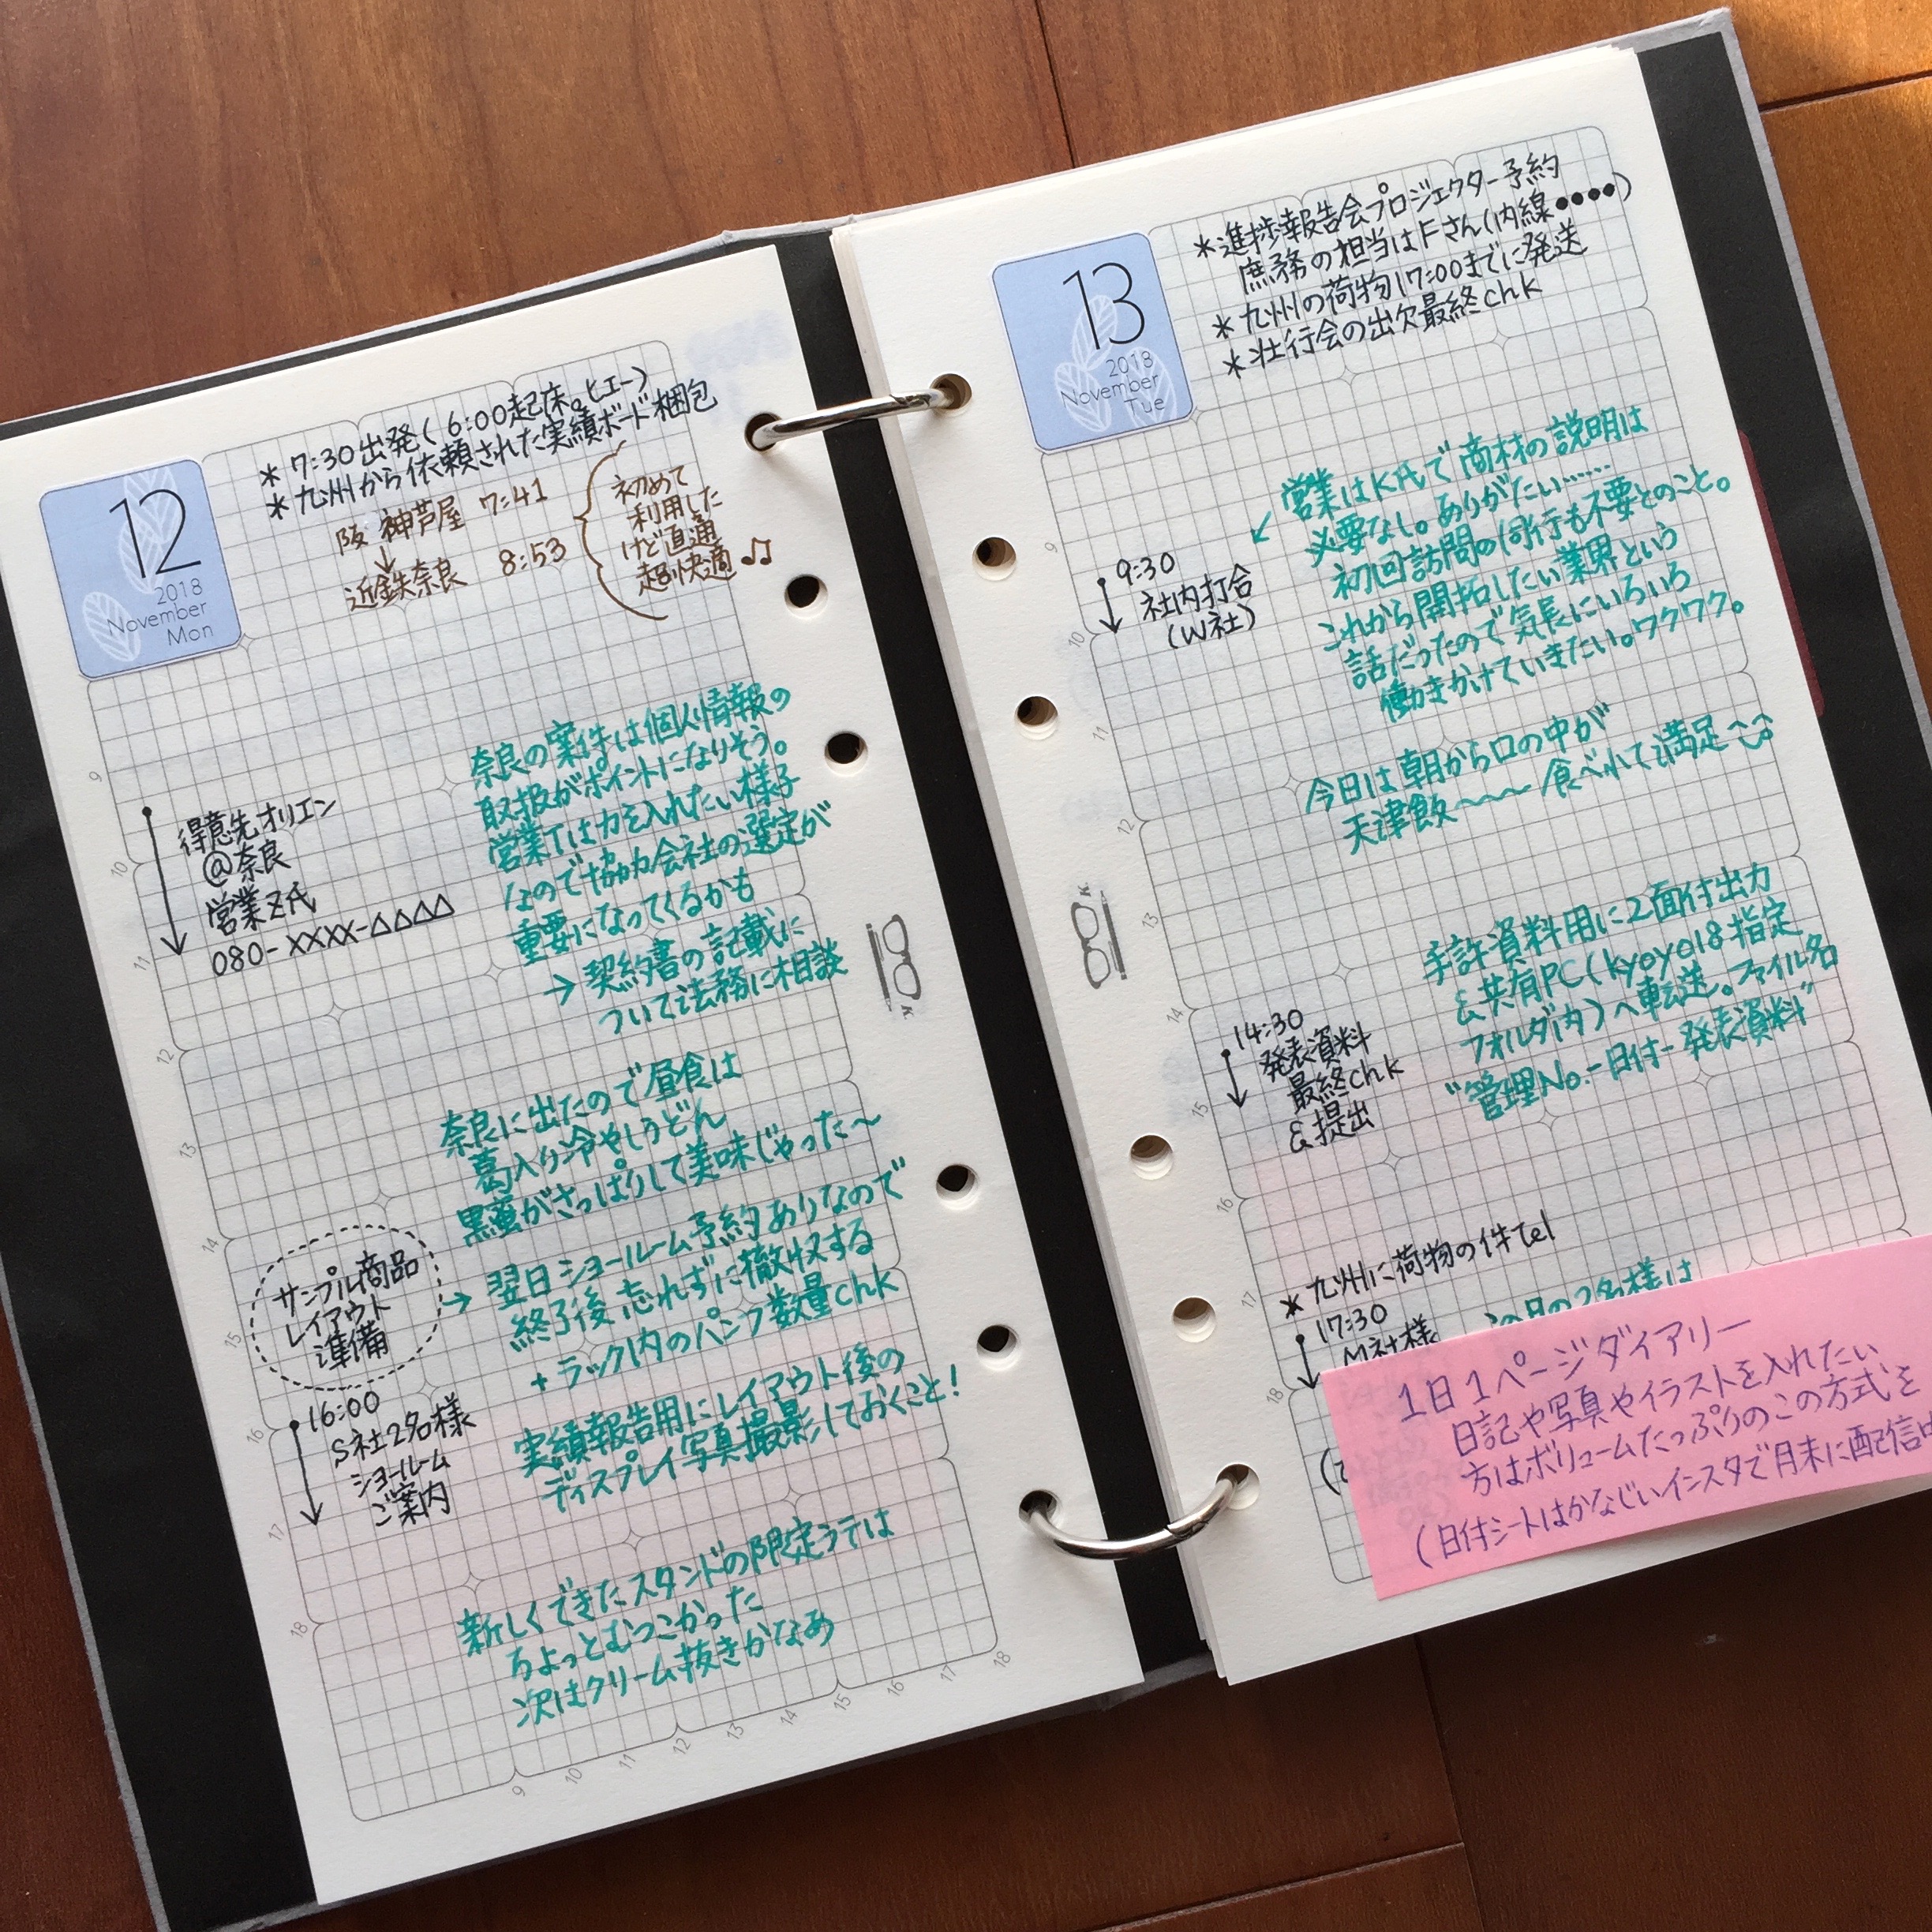 12
2018
November
Mon
* 7:30出発(6:00起床。ヒエー)
* 九州から依頼された実績ボード梱包
阪神芦屋 7:41
↓
近鉄奈良 8:53
初めて
利用した
けど直通
超快適♫
9
10
11
12
13
14
15
16
17
18
得意先オリエン
@奈良
営業Z氏
080-XXXX-△△△△
奈良の案件は個人情報の
取扱がポイントになりそう。
営業Tは力を入れたい様子
なので協力会社の選定が
重要になってくるかも
→ 契約書の記載に
ついて法務に相談
奈良に出たので昼食は
葛入り冷やしうどん
黒蜜がさっぱりして美味じゃった〜
サンプル商品
レイアウト
準備
→ 翌日ショールーム予約ありなので
終了後忘れずに撤収する
+ラック内のパンフ数量chk
16:00
S社2名様
ショールーム
ご案内
実績報告用にレイアウト後の
ディスプレイ写真撮影しておくこと!
新しくできたスタンドの限定ラテは
ちょっとむつこかった
次はクリーム抜きかなあ
9 10 11 12 13 14 15 16 17 18
K
13
2018
November
Tue
*進捗報告会プロジェクター予約
庶務の担当はFさん(内線●●●●)
* 九州の荷物17:00までに発送
* 壮行会の出欠最終chk
K
9
10
11
12
13
14
15
16
17
18
9:30
社内打合
(W社)
営業はK氏で商材の説明は
必要なし。ありがたい……
初回訪問の同行も不要とのこと。
これから開拓したい業界という
話だったので気長にいろいろ
働きかけていきたい。ワクワク。
今日は朝から口の中が
天津飯〜〜〜食べれて満足
14:30
発表資料
最終chk
&提出
手許資料用に2面付出力
&共有PC(kyoyo18指定
フォルダ内)へ転送。ファイル名
"管理No.-日付-発表資料"
* 九州に荷物の件tel
17:30
M社様
この日の2名様は
1日1ページダイアリー
日記や写真やイラストを入れたい
方はボリュームたっぷりのこの方式を
(日付シートはかなじいインスタで月末に配信中